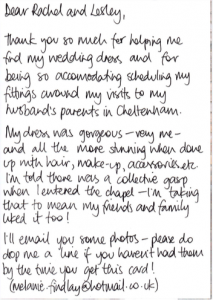 Dear Rachel and Lesley,
Thank you so much for helping me
find my wedding dress and for
being so accomodating scheduling my
fittings around my visits to my
husband's parents in Cheltenham.
My dress was gorgeous – very me –
and all the more stunning when done
up with hair, make-up, accessories etc.
I'm told there was a collective gasp
when I entered the chapel – I'm taking
that to mean my friends and family
liked it too!
I'll email you some photos – please do
drop me a line if you haven't had them
by the time you get this card!
(melanie.findlay@hotmail.co.uk)